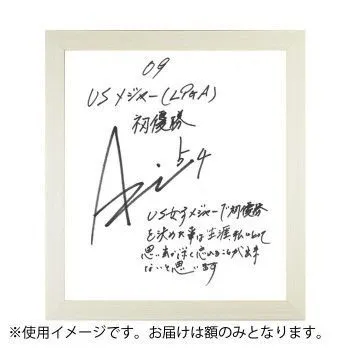 09
USメジャー(LPGA)
初優勝
Ai 54
US女子メジャーで初優勝
を決めた事は生涯私にとって
思い出が深く忘れることが出来
ないと思います
※使用イメージです。お届けは額のみとなります。